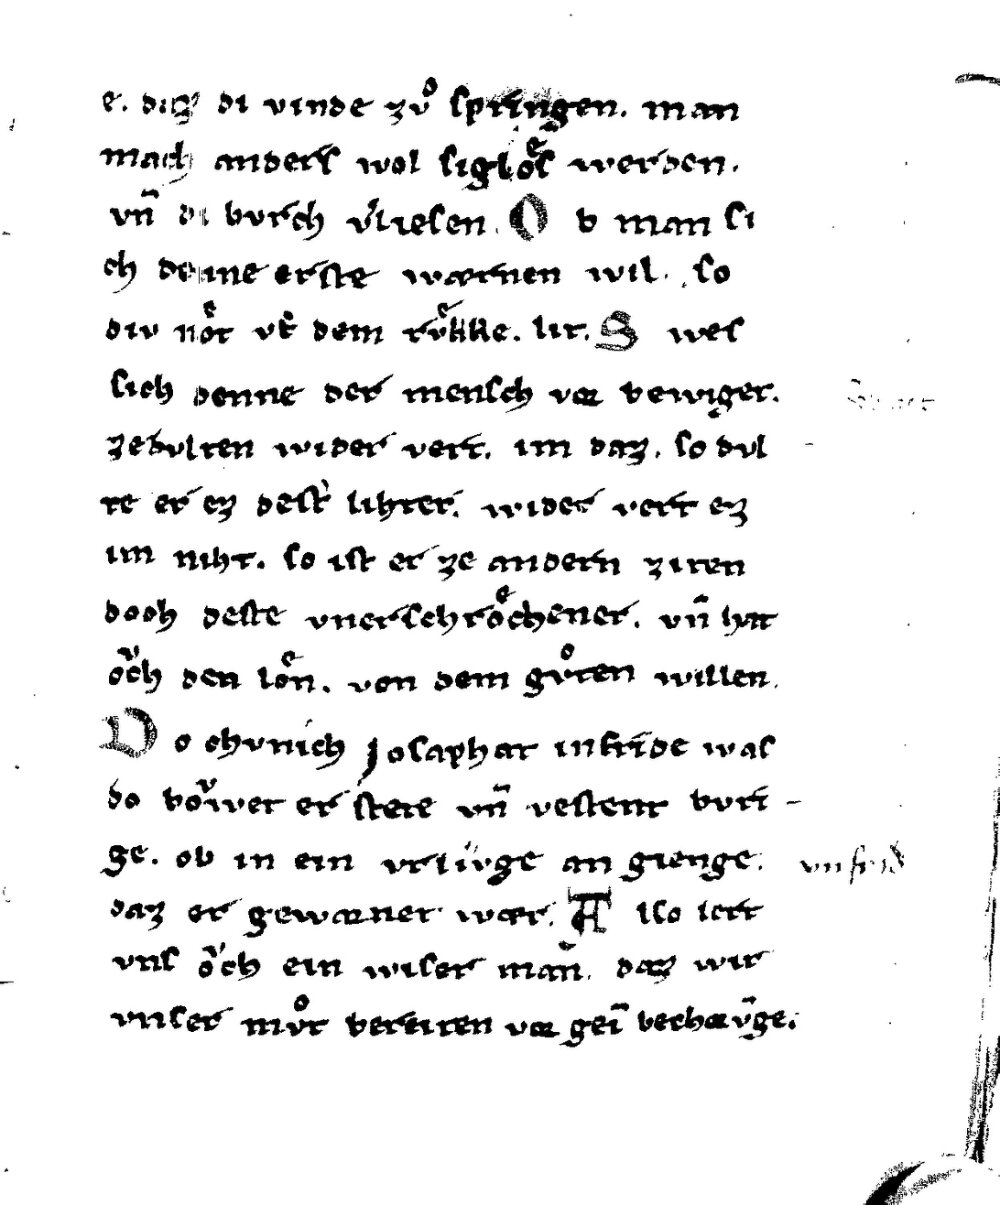 e. daz di vinde zvͦ springen. man
mach anders wol sigloͤs werden.
vn̄ di burch v͛liesen. O b man si
ch denne erste wærnen wil. so
div noͤt vf dem rvͤkke. lit. S wes
sich denne der mensch vor bewiget.
zedulten wider vert. im daz. so dul
te er ez dest͛ lihter. wider vert ez
im niht. so ist er ze andern ziten
doch deste vnerschroͤchener. vn̄ hat
oͮch den loͤn. von dem gvͦten willen.
D o chvnich josaphat infride was
do boͮwet er stete vn̄ vestent buri
ge. ob in ein vrlivge an gienge.
daz er gewarnet wær. A lso lert
vns oͮch ein wiser man̄. daz wir
vnser mvͦt bereiten vor gei̅ bechorv̅ge.
vnfrid